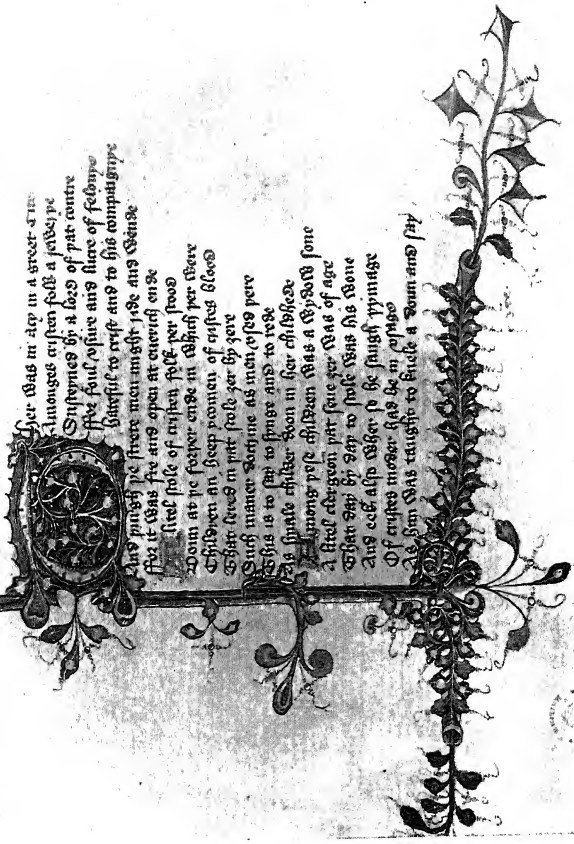 Ther was in asy in a greet Cite
Amonges cristen folk a jewerye
Susteyned by a lord of þat contre
ffor foul vsure and lucre of felonye
hateful to crist and to his compaignye
And þurgh þe strete men might ride and wende
ffor it was fre and open at euerich ende
A litel scole of cristen folk þer stood
Doun at þe forþer ende in which þer were
Children an heep ycomen of cristes blood
That lered in þat scole ȝer by ȝere
Such maner doctrine as men vsed þere
This is to say to synge and to rede
As smale childer doon in her childhede
Among þese children was a wydow sone
A litel clergeoun þat seue ȝer was of age
That day by day to scole was his wone
And eek also wher so he saugh þymage
Of cristes moder had he in vsage
As him was taught to knele a doun and say